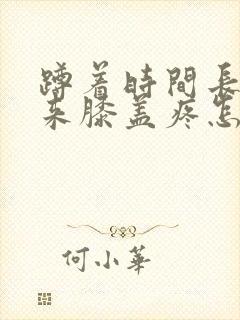 蹲着時間長
来膝盖疼怎
何小華